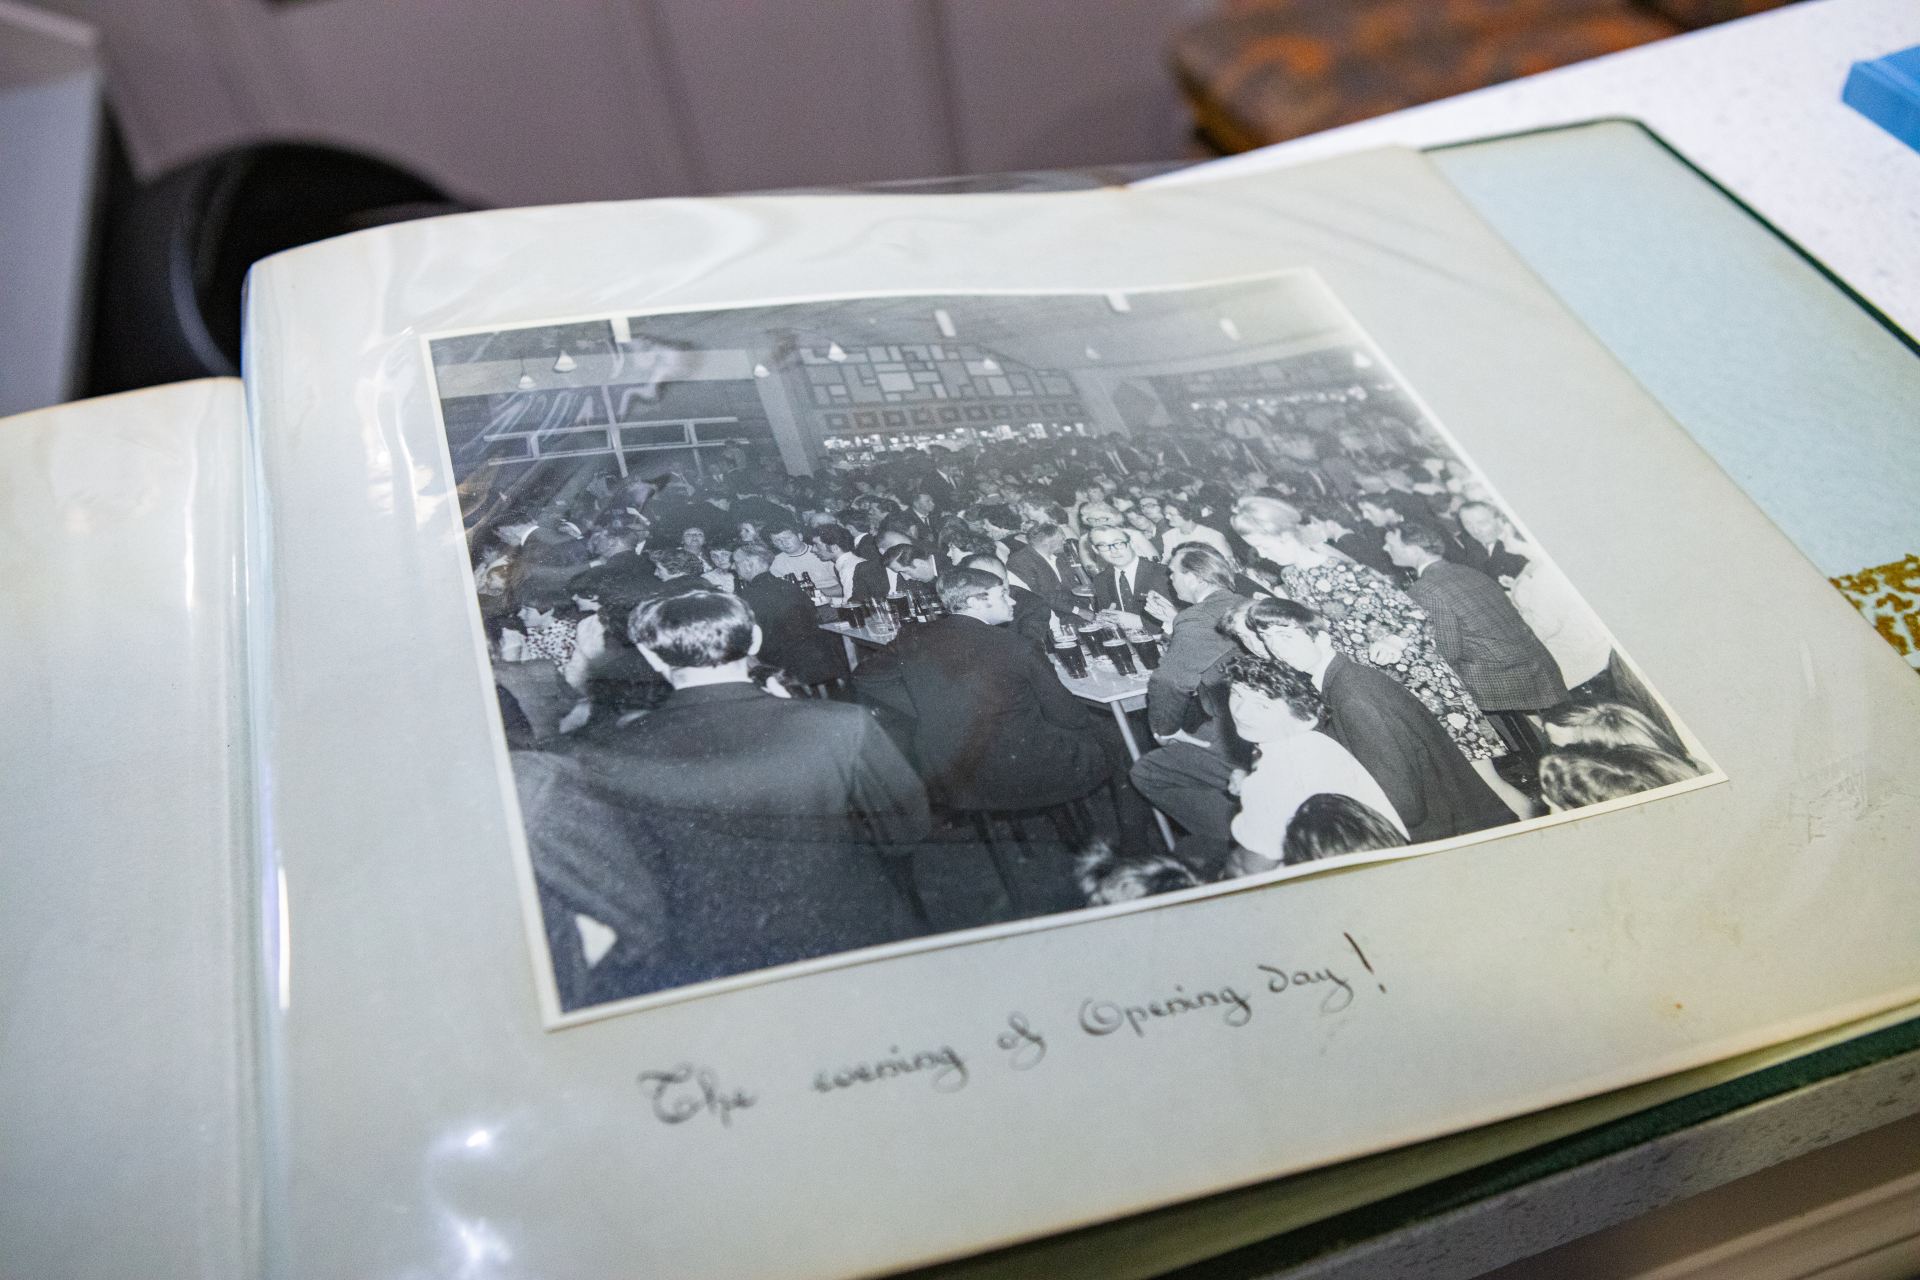 The evening of Opening day!